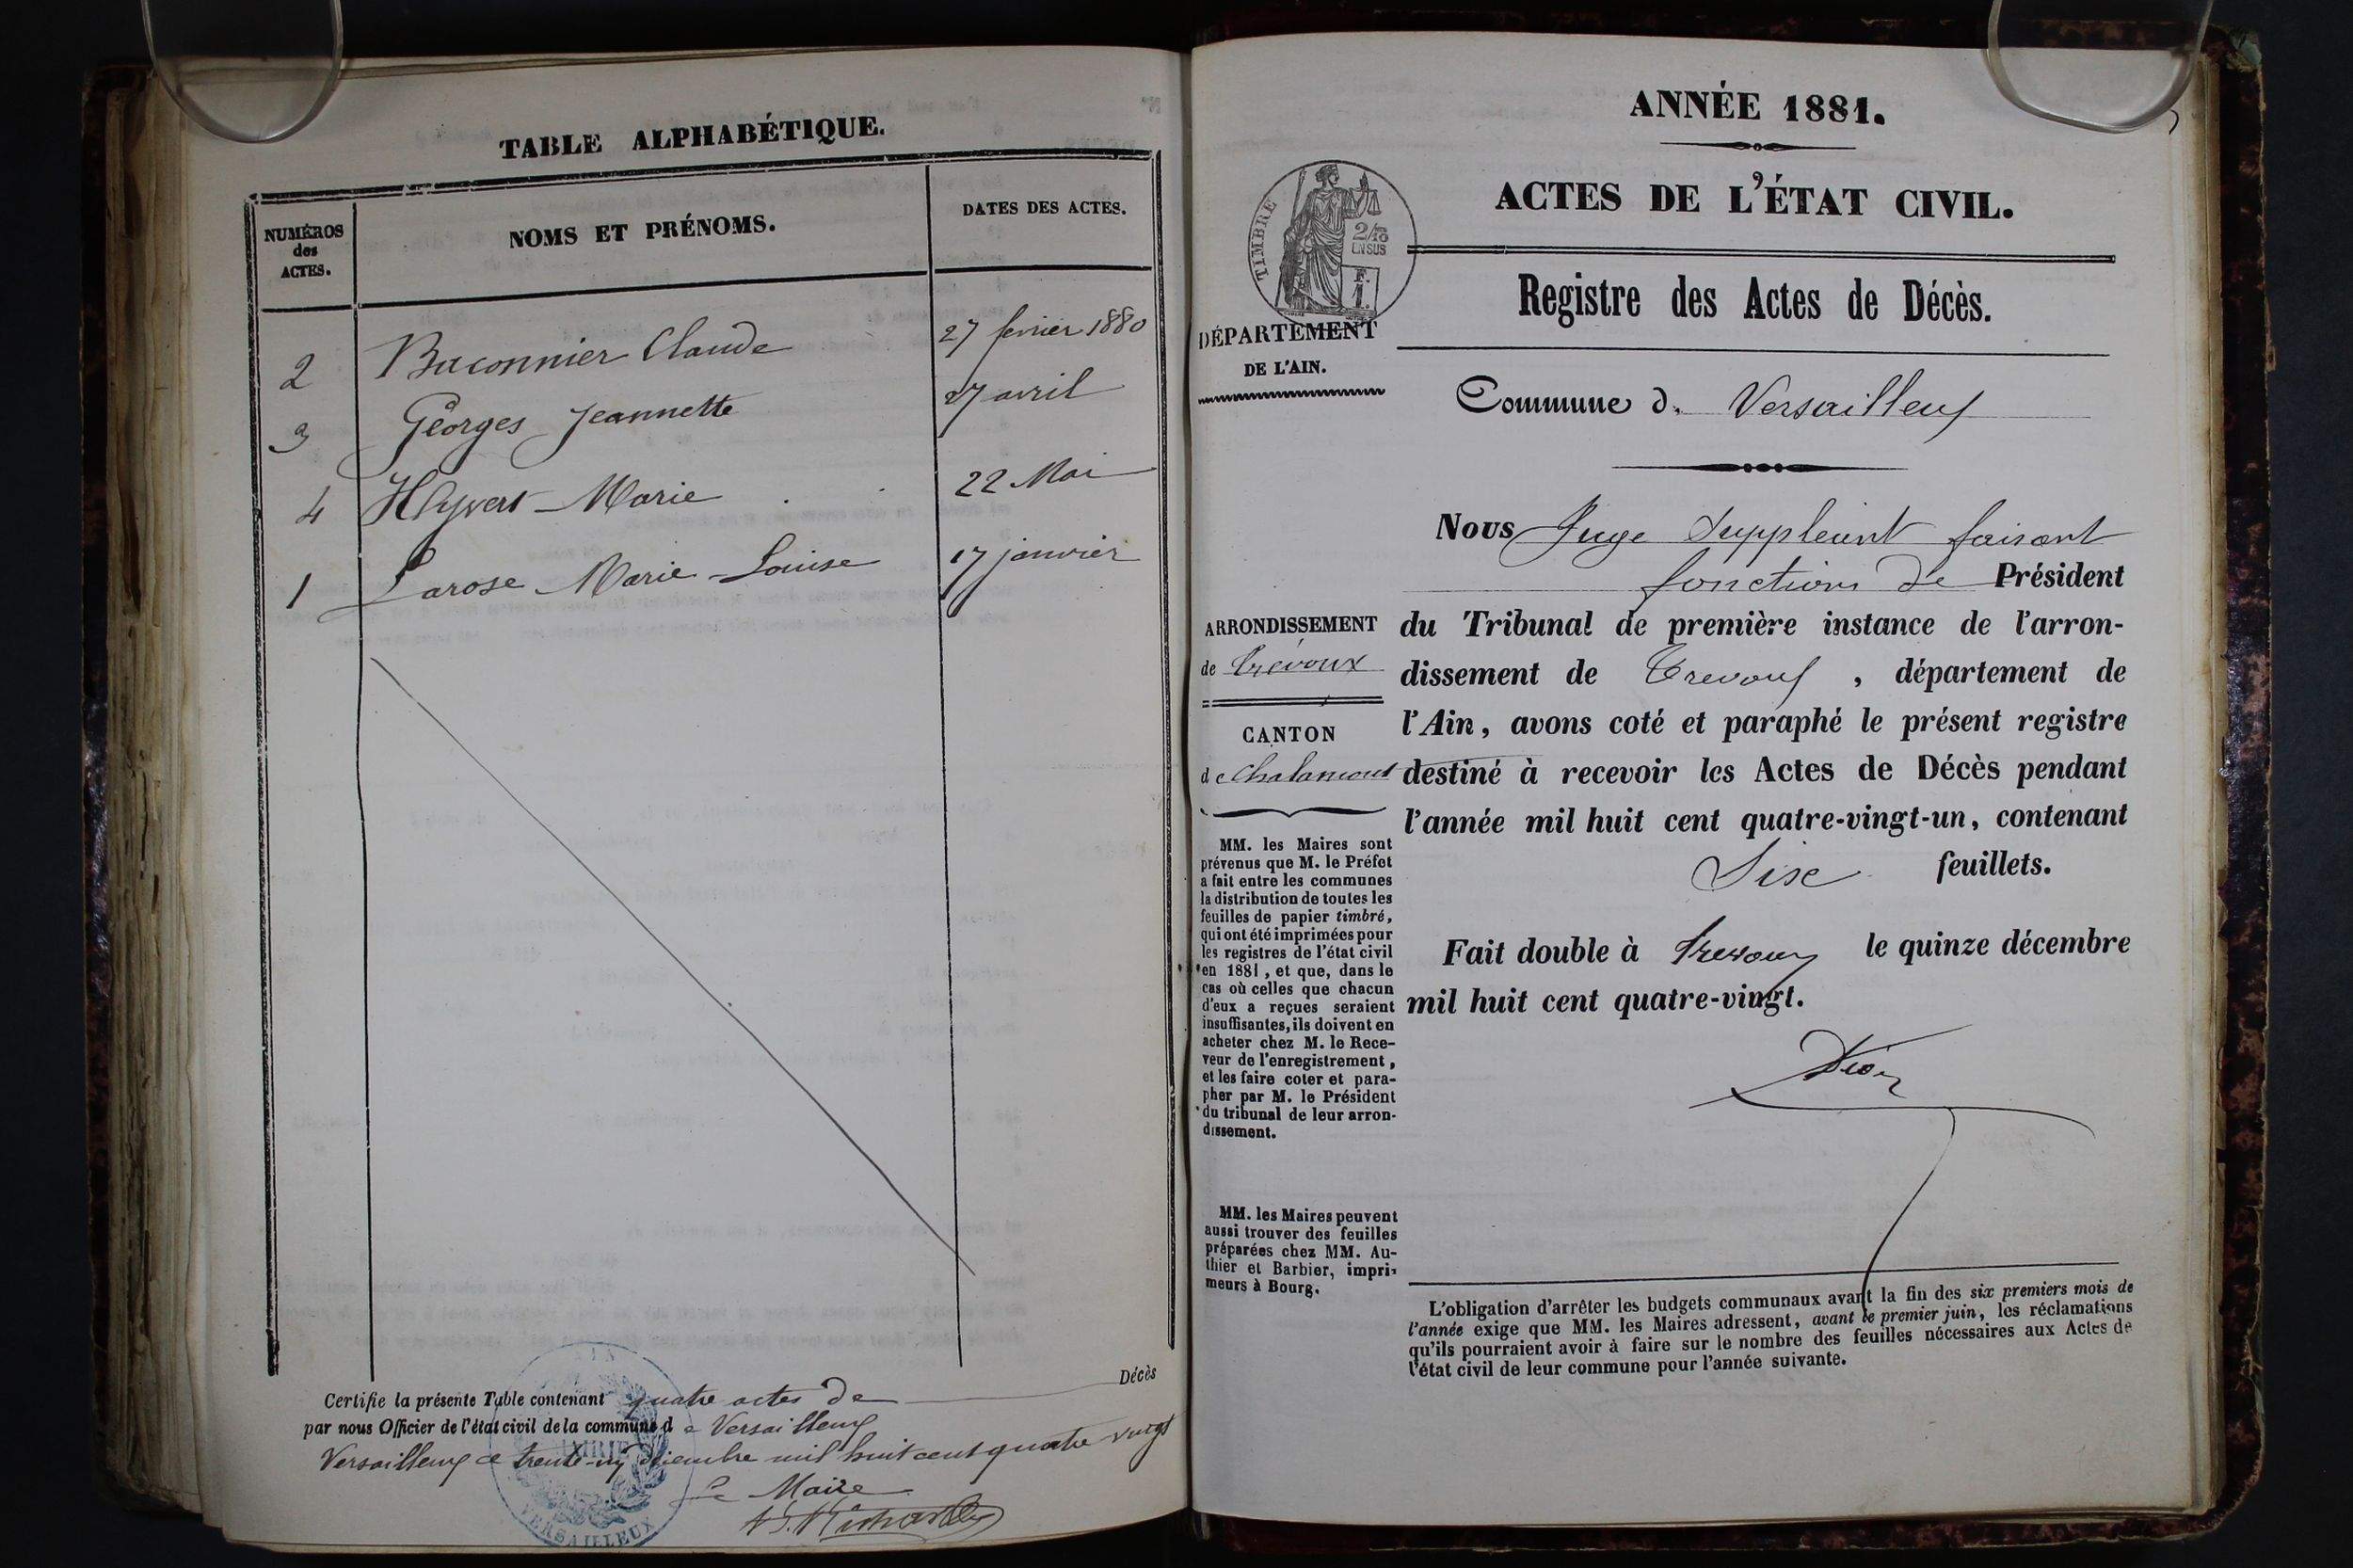 TABLE ALPHABÉTIQUE.
NUMÉROS
des
ACTES.
NOMS ET PRÉNOMS.
DATES DES ACTES.
2 Baconnier Claude 27 fevrier 1880
3 Georges Jeannette 27 avril
4 Hyvert Marie 22 Mai
1 Larose Marie-Louise 17 janvier
Certifie la présente Table contenant quatre actes de Décès
par nous Officier de l'état civil de la commune de Versailleux
Versailleux ce trente-un décembre mil huit cent quatre vingt
Le Maire
MAIRIE
VERSAILLEUX
ANNÉE 1881.
ACTES DE L'ÉTAT CIVIL.
TIMBRE
2/10
EN SUS
F.
1.
DÉPARTEMENT
DE L'AIN.
Registre des Actes de Décès.
Commune de Versailleux
Nous Juge Suppléant faisant
fonctions de Président
du Tribunal de première instance de l'arron-
dissement de Trevoux, département de
l'Ain, avons coté et paraphé le présent registre
destiné à recevoir les Actes de Décès pendant
l'année mil huit cent quatre-vingt-un, contenant
Six feuillets.
Fait double à Trevoux le quinze décembre
mil huit cent quatre-vingt.
ARRONDISSEMENT
de Trévoux
CANTON
de Chalamont
MM. les Maires sont
prévenus que M. le Préfet
a fait entre les communes
la distribution de toutes les
feuilles de papier timbré,
qui ont été imprimées pour
les registres de l'état civil
en 1881, et que, dans le
cas où celles que chacun
d'eux a reçues seraient
insuffisantes, ils doivent en
acheter chez M. le Rece-
veur de l'enregistrement,
et les faire coter et para-
pher par M. le Président
du tribunal de leur arron-
dissement.
MM. les Maires peuvent
aussi trouver des feuilles
préparées chez MM. Au-
thier et Barbier, impri-
meurs à Bourg.
L'obligation d'arrêter les budgets communaux avant la fin des six premiers mois de
l'année exige que MM. les Maires adressent, avant le premier juin, les réclamations
qu'ils pourraient avoir à faire sur le nombre des feuilles nécessaires aux Actes de
l'état civil de leur commune pour l'année suivante.